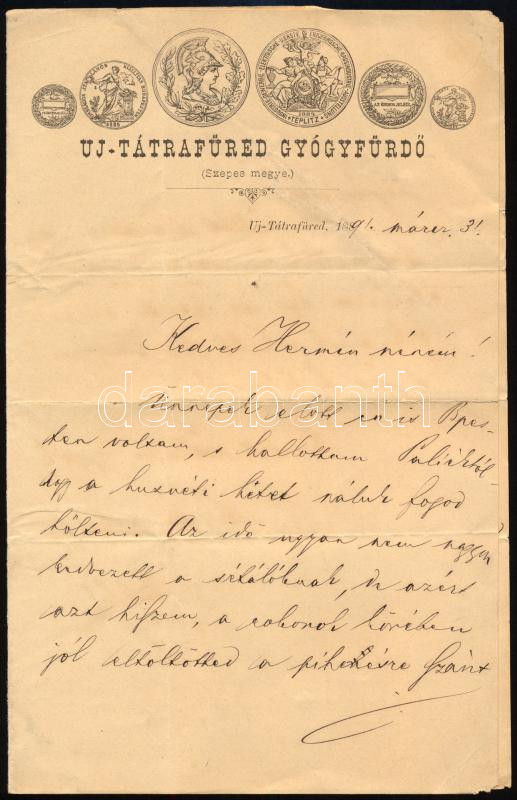 UJ-TÁTRAFÜRED GYÓGYFÜRDŐ
(Szepes megye.)
Uj-Tátrafüred, 1891. márcz. 31.
Kedves Hermin néném!
Ünnepek előtt én is Bpes-
ten voltam, s hallottam Paliéktól
hogy a husvéti hetet náluk fogod
tölteni. Az idő ugyan nem nagyon
kedvezett a sétálóknak, de azért
azt hiszem, a rokonok körében
jól eltöltötted a pihenésre szánt
darabanth
1884
TEPLITZ
AZ ÉRDEM JELÉÜL